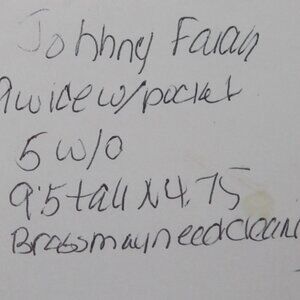 Johnny Farah
9 wide w/pocket
5 w/o
9.5 tall x 4.75
Brass may need clean